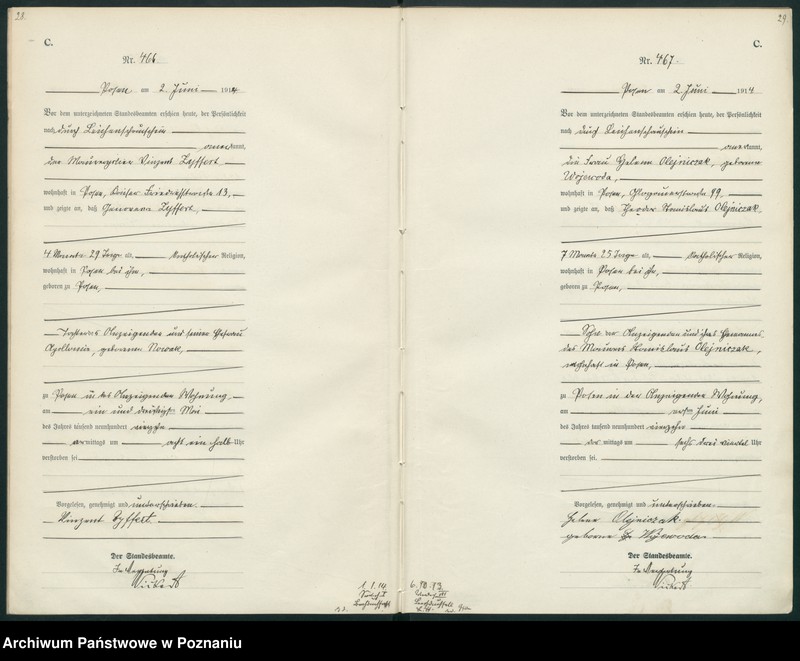 28.
C.
Nr. 466
Posen am 2 Juni 1914
Vor dem unterzeichneten Standesbeamten erschien heute, der Persönlichkeit
nach durch Leichenschauschein
kannt,
der Maurerpolier Vinzent Zyffert
wohnhaft in Posen, 13,
und zeigte an, daß Zyffert,
4 Monate 29 Tage alt, katholischer Religion,
wohnhaft in Posen bei ihm,
geboren zu Posen,
Tochter des Anzeigenden und seiner Ehefrau
Apollonia, geborenen Nowak,
zu Posen in des Anzeigenden Wohnung,
am ein und dreißigsten Mai
des Jahres tausend neunhundert vierzehn
vormittags um acht ein halb Uhr
verstorben sei.
Vorgelesen, genehmigt und unterschrieben.
Vinzent Zyffert.
Der Standesbeamte.
In Vertretung
1.1.14
29.
C.
Nr. 467
Posen am 2 Juni 1914
Vor dem unterzeichneten Standesbeamten erschien heute, der Persönlichkeit
nach durch Leichenschauschein
kannt,
die Frau Helene Olejniczak, geborene
Wojewoda,
wohnhaft in Posen, Glogauerstraße 99
und zeigte an, daß Theodor Stanislaus Olejniczak,
7 Monate 25 Tage alt, katholischer Religion,
wohnhaft in Posen bei ihr,
geboren zu Posen,
Sohn der Anzeigenden und ihres Ehemannes
des Maurers Stanislaus Olejniczak,
wohnhaft in Posen,
zu Posen in der Anzeigenden Wohnung,
am ersten Juni
des Jahres tausend neunhundert vierzehn
vormittags um sechs drei viertel Uhr
verstorben sei.
Vorgelesen, genehmigt und unterschrieben.
Helene Olejniczak
geborene Wojewoda
Der Standesbeamte.
In Vertretung
6.10.13.
Archiwum Państwowe w Poznaniu